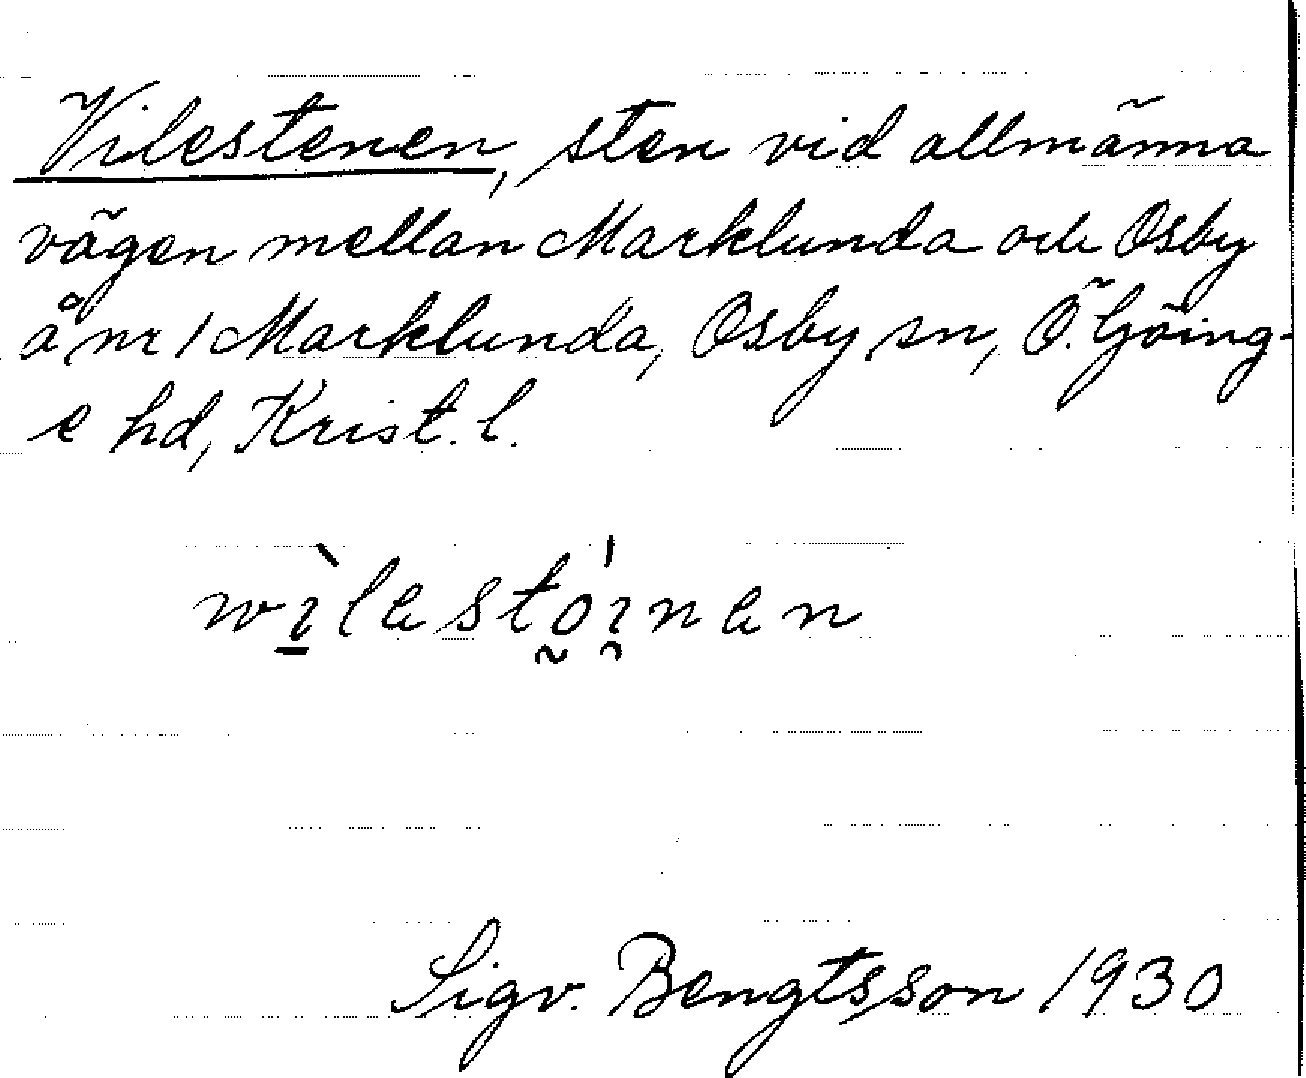 Vilestenen, sten vid allmänna
vägen mellan Marklunda och Osby
å nr 1 Marklunda, Osby sn, Ö. Göing-
e hd, Krist. l.
wìlesto̰ı̯́nen
Sigv. Bengtsson 1930